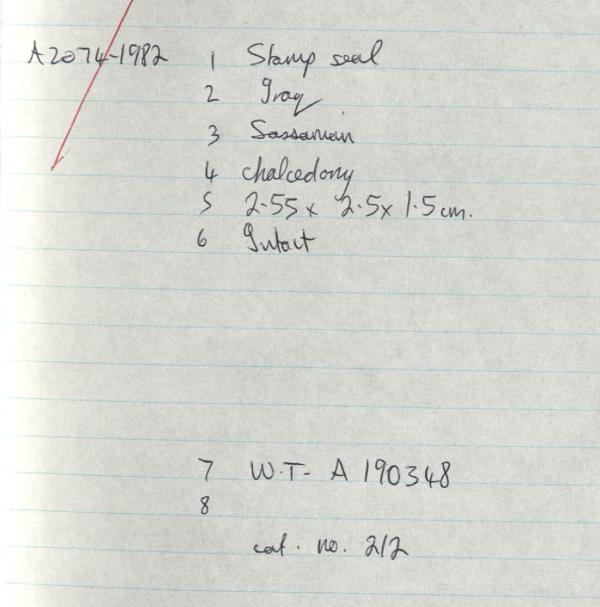 A2074-1982 1 Stamp seal
2 Iraq
3 Sassanian
4 chalcedony
5 2.55 x 2.5 x 1.5 cm.
6 Intact
7 W.T- A 190348
8
cat. no. 212